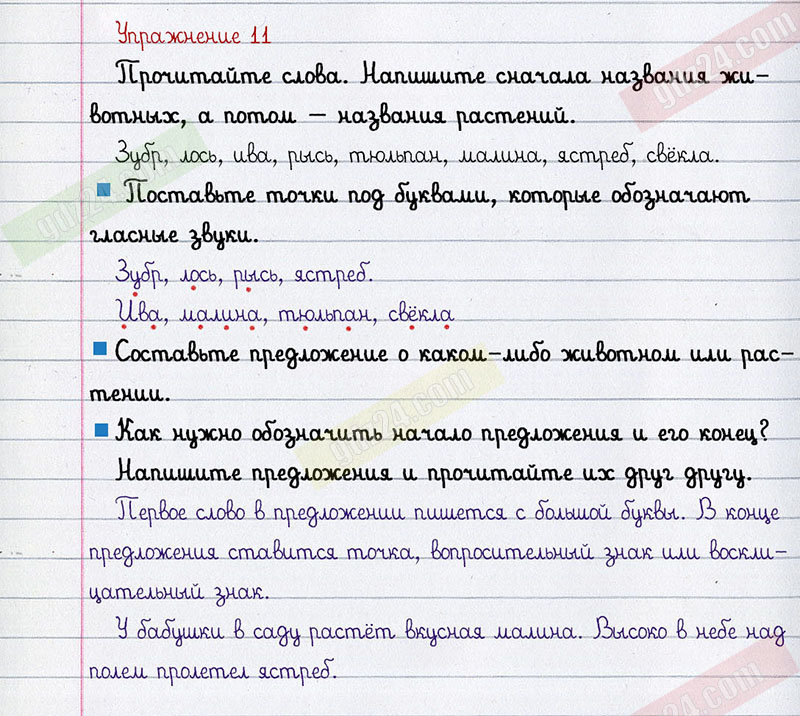 Упражнение 11
Прочитайте слова. Напишите сначала названия жи-
вотных, а потом — названия растений.
Зубр, лось, ива, рысь, тюльпан, малина, ястреб, свёкла.
Поставьте точки под буквами, которые обозначают
гласные звуки.
Зубр, лось, рысь, ястреб.
Ива, малина, тюльпан, свёкла
Составьте предложение о каком-либо животном или рас-
тении.
Как нужно обозначить начало предложения и его конец?
Напишите предложения и прочитайте их друг другу.
Первое слово в предложении пишется с большой буквы. В конце
предложения ставится точка, вопросительный знак или воскли-
цательный знак.
У бабушки в саду растёт вкусная малина. Высоко в небе над
полем пролетел ястреб.
gdz24.com
gdz24.com
gdz24.com
gdz24.com